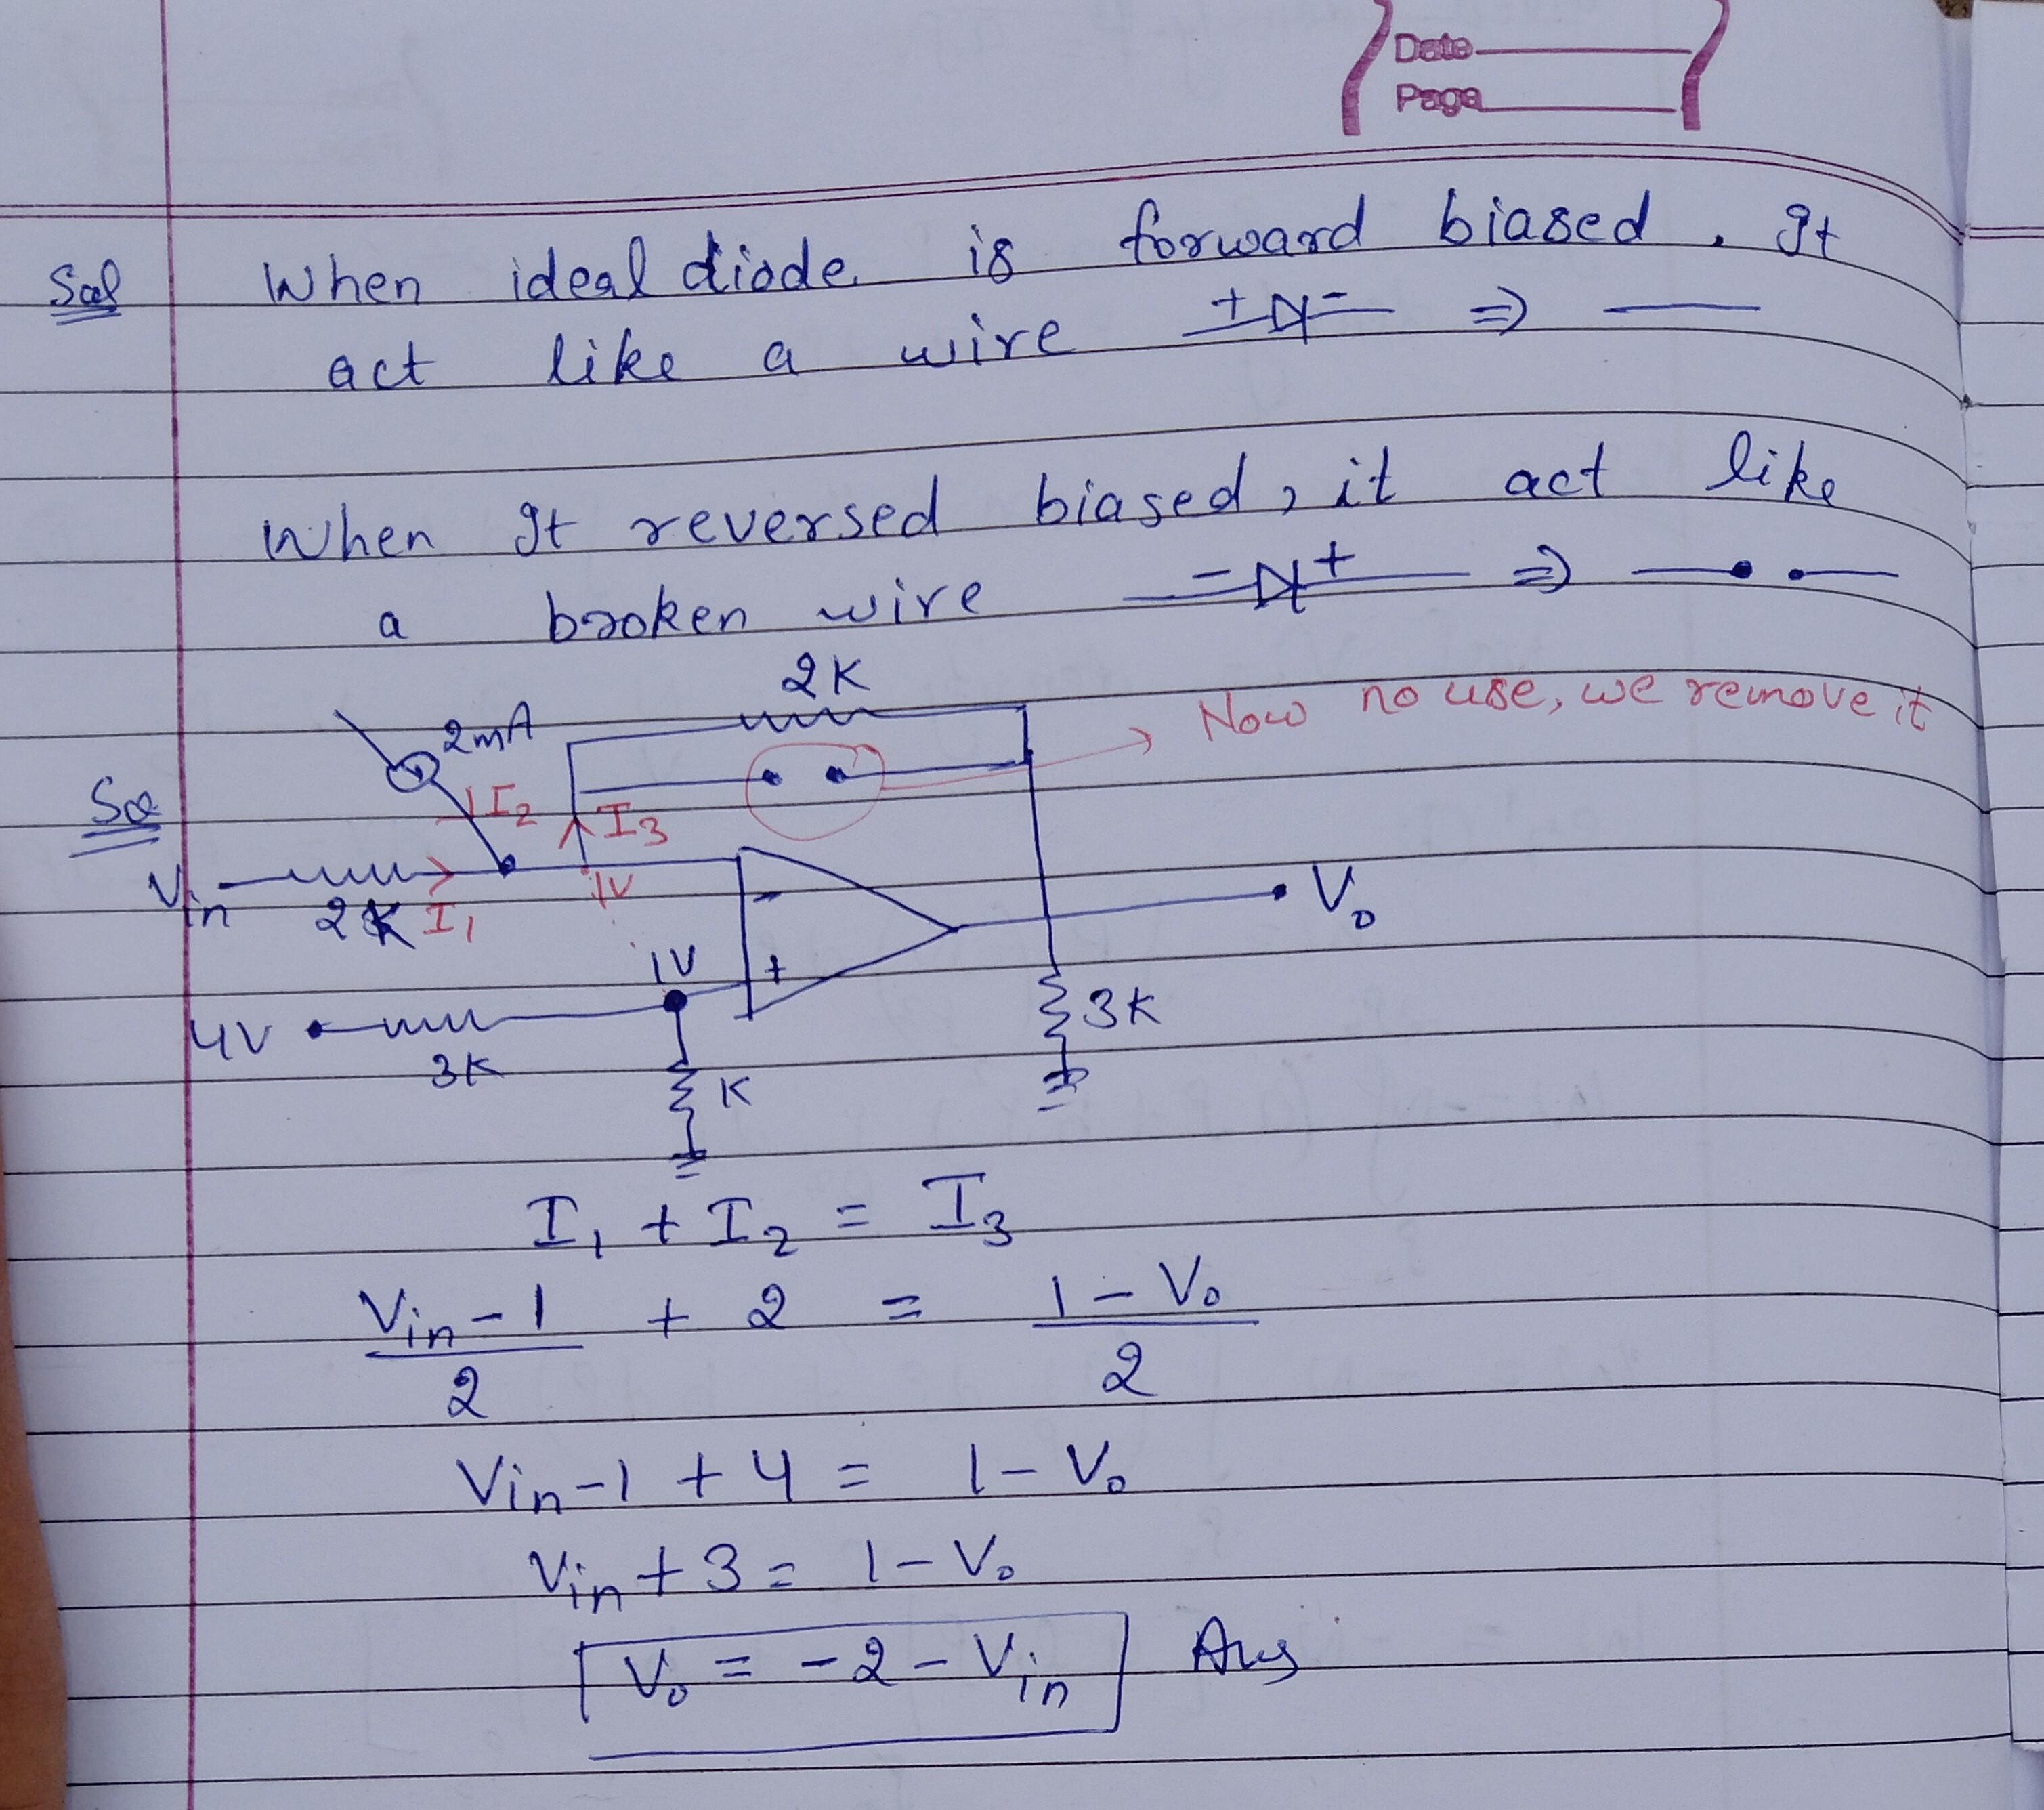 Date
Page
Sol When ideal diode is forward biased. It
act like a wire + - ⇒
When It reversed biased, it act like
a broken wire - + ⇒
2K
Now no use, we remove it
2mA
I₂
I₃
Vin 2K I₁
1V
V₀
1V
-
+
4V 3K
K
3K
I₁ + I₂ = I₃
Vin - 1 / 2 + 2 = 1 - V₀ / 2
Vin - 1 + 4 = 1 - V₀
Vin + 3 = 1 - V₀
V₀ = -2 - Vin Ans